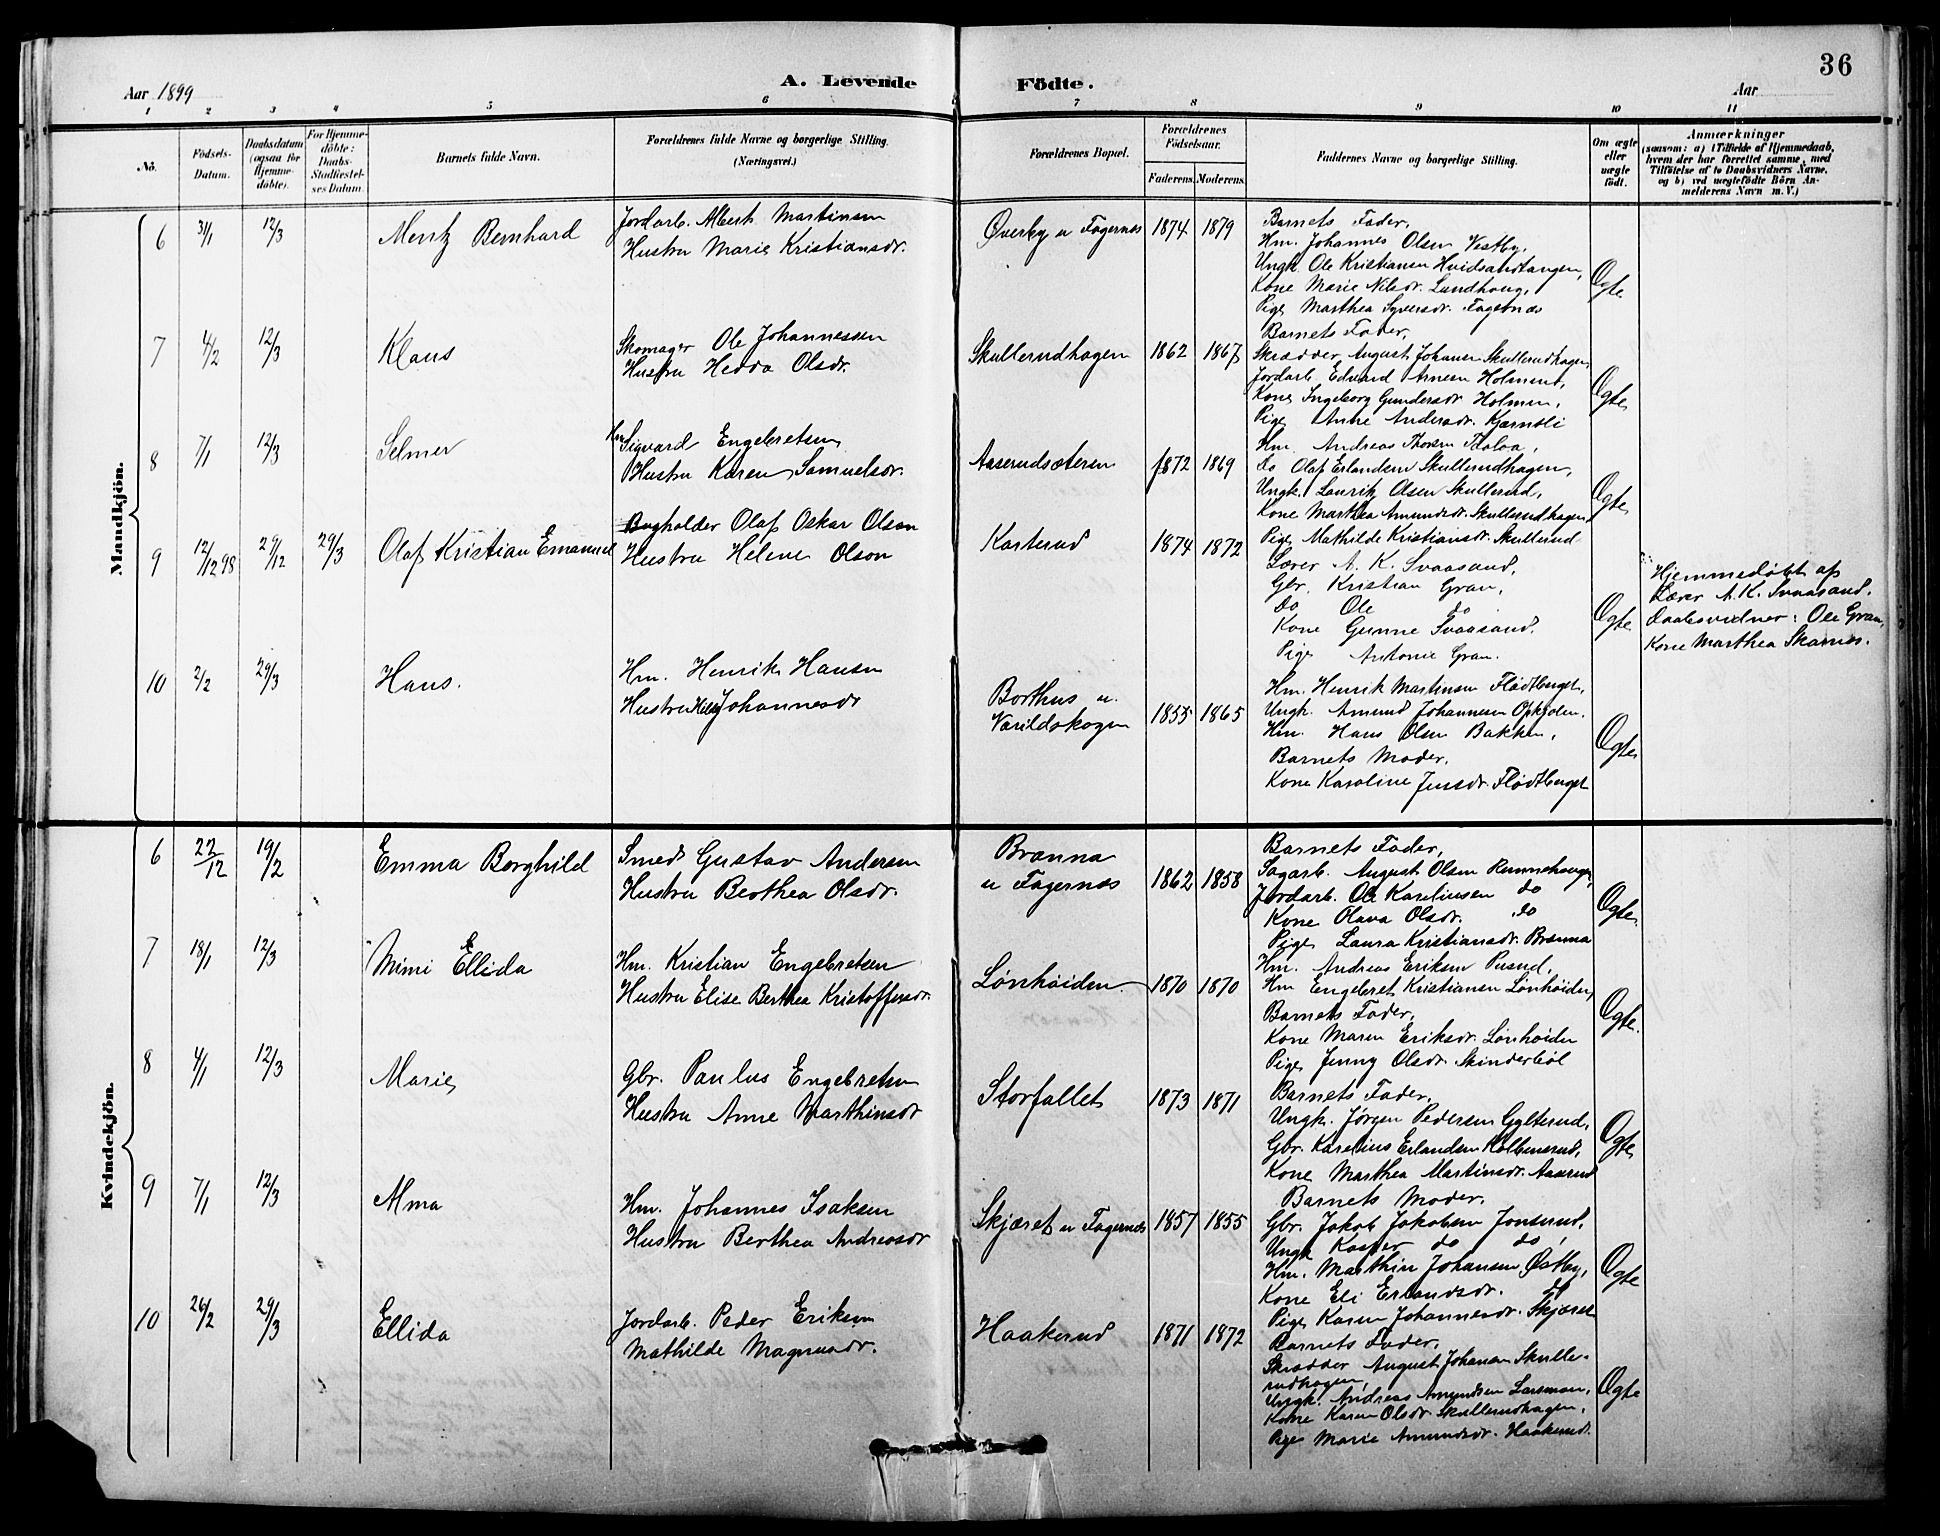 36
A. Levende Födte.
Aar 1899
Aar
1 2 3 4 5 6 7 8 9 10 11
No.
Födsels-Datum.
Daabsdatum (ogsaa för Hjemme-döbte).
For Hjemme-döbte: Daabs-Stadfæstel-ses Datum.
Barnets fulde Navn.
Forældrenes fulde Navne og borgerlige Stilling.
(Næringsvei.)
Forældrenes Bopæl.
Forældrenes Födselsaar.
Faderens. Moderens.
Faddernes Navne og borgerlige Stilling.
Om ægte eller uægte født.
Anmærkninger
(saasom: a) i Tilfælde af Hjemmedaab,
hvem der har forrettet samme, med
Tilföielse af to Daabsvidners Navne,
og b) ved uægtefödte Börn An-
melderens Navn m. V.)
Mandkjön.
6 31/1 12/3 Mentz Bernhard
Jordarb. Albert Martinsen
Hustru Marie Kristiansdr.
Øverby u Fagernes 1874 1879
Barnets Fader,
Hm. Johannes Olsen Vestby,
Ungk. Ole Kristiansen Hvidsandtangen,
Kone Marie Nilsdr. Lundhoug,
Pige Marthea Syversdr. Fagernæs
Ægte
7 4/2 12/3 Klaus
Skomager Ole Johannessen
Hustru Hedda Olsdr.
Skullerudhagen 1862 1867
Barnets Fader,
Skrædder August Johansen Skullerudhagen,
Jordarb. Edvard Arnesen Holmen,
Kone Ingeborg Gundersdr Holmen,
Pige Anne Andersdr. Kærnsli
Ægte
8 7/1 12/3 Selmer
Hm Sigvard Engebretsen
Hustru Karen Samuelsdr.
Aaserudsæteren 1872 1869
Hm. Andreas Thoresen
Do Olaf Erlandsen Skullerudhagen,
Ungk. Lauritz Olsen Skullerud,
Kone Marthea Amundsdr. Skullerudhagen,
Pige Mathilde Kristiansdr. Skullerud
Ægte
9 12/12 98 29/12 29/3 Olaf Kristian Emanuel
Bogholder Olaf Oskar Olson
Hustru Helene Olson
Karterud 1874 1872
Lærer A. K. Svaasand,
Gbr. Kristian Gran,
Do Ole do
Kone Gunne Svaasand.
Pige Antonie Gran.
Ægte
Hjemmedøbt af
Lærer A. K. Svaasand.
Daabsvidner: Ole Gran,
Kone Marthea Skarnes.
10 2/2 29/3 Hans.
Hm. Henrik Hansen
Hustru Helle Johannesdr
Borthus u.
Varildskogen 1855 1865
Hm. Henrik Martinsen Flødtberget,
Ungk. Amund Johannesen Opkjølen,
Hm. Hans Olsen Bakken,
Barnets Moder,
Kone Karoline Jensdr. Flødtberget
Ægte
Kvindekjön.
6 22/12 19/2 Emma Borghild
Smed Gustav Andersen
Hustru Berthea Olsdr.
Brænna
u Fagernæs 1862 1858
Barnets Fader,
Sagarb. August Olsen
Jordarb. Ole Karelinsen do
Kone Olava Olsdr. do
Pige Laura Kristiansdr. Brænna
Ægte
7 18/1 12/3 Mimi Ellida
Hm. Kristian Engebretsen
Hustru Elise Berthea Kristoffersdr.
Lønhøiden 1870 1870
Hm. Andreas Eriksen
Hm Engebret Kristiansen Lønhøiden,
Barnets Fader,
Kone Maren Eriksdr. Lønhøiden
Pige Jenny Olsdr. Skinderböl
Ægte.
8 4/1 12/3 Marie
Gbr. Paulus Engebretsen
Hustru Anne Marthinsdr
Storfallet 1873 1871
Barnets Fader,
Ungk. Jørgen Pedersen Gylterud,
Gbr. Karelius Erlandsen Kolbenerud,
Kone Marthea Martinsdr. Aaserud
Barnets Moder,
Ægte
9 7/1 12/3 Alma
Hm. Johannes Isaksen
Hustru Berthea Andreasdr
Skjæret u Fagernæs 1857 1855
Gbr. Jakob Jakobsen Jonserud,
Ungk Kasper do do,
Hm. Marthin Johansen Østby,
Kone Eli Erlandsdr. do
Pige Karen Johannesdr. Skjæret
Ægte
10 26/2 29/3 Ellida
Jordarb. Peder Eriksen
Mathilde Magnusdr.
Haakerud 1871 1872
Barnets Fader,
Skrædder August Johansen Skulle-
rudhagen,
Ungk. Andreas Amundsen Larsmon,
Kone Karen Olsdr. Skullerudhagen,
Pige Marie Amundsdr. Haakerud.
Ægte